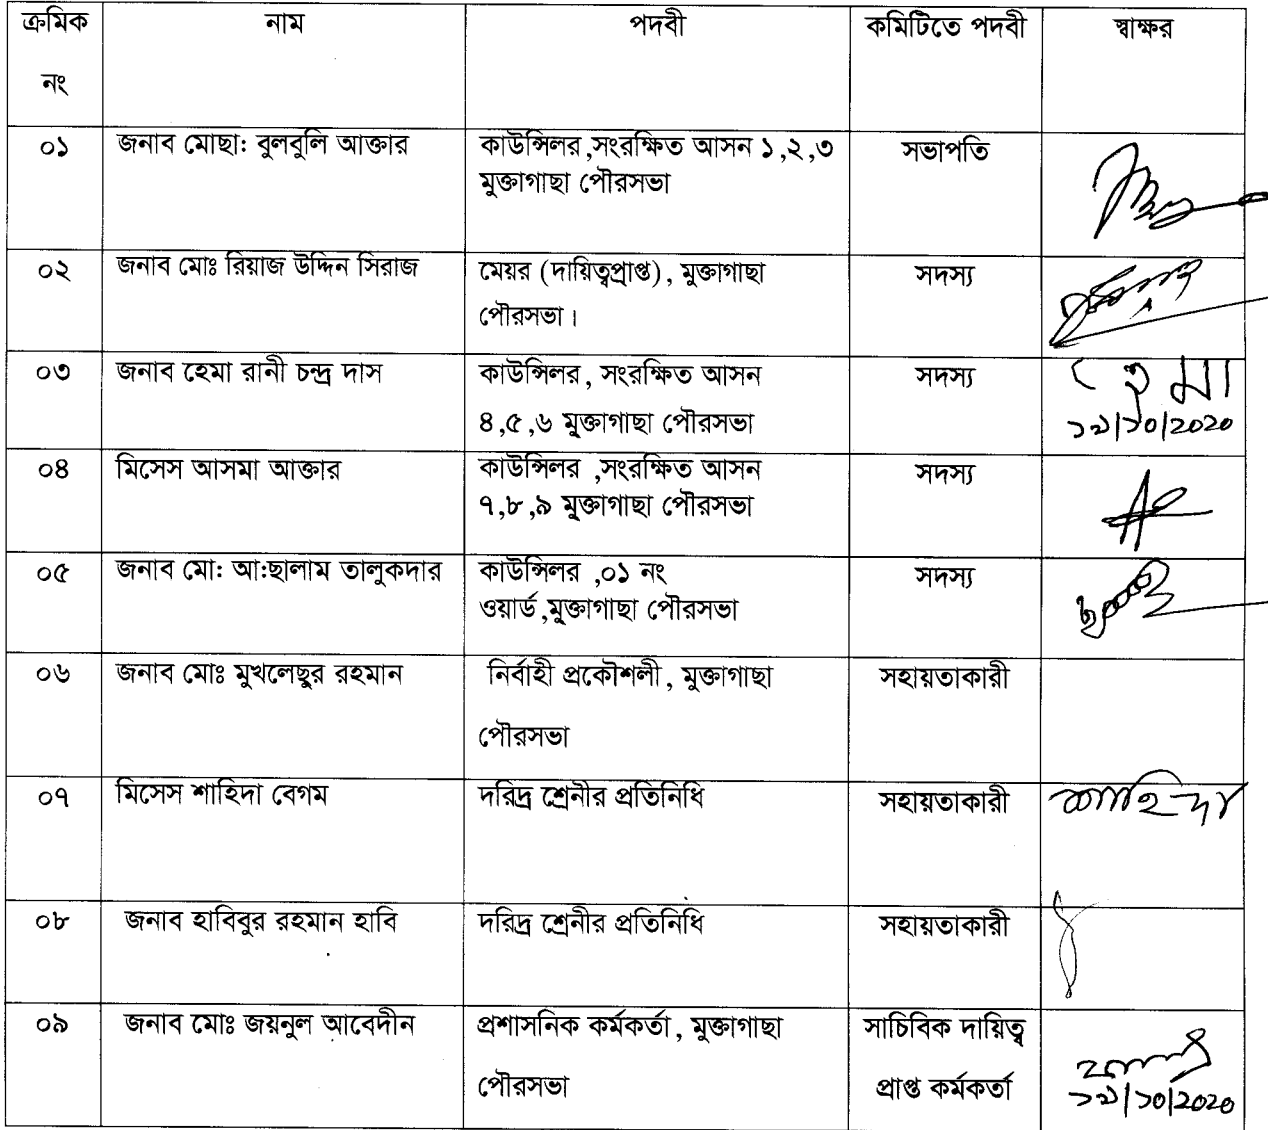 ক্রমিক নং	নাম	পদবী	কমিটিতে পদবী	স্বাক্ষর
০১	জনাব মোছা: বুলবুলি আক্তার	কাউন্সিলর ,সংরক্ষিত আসন ১,২,৩
মুক্তাগাছা পৌরসভা	সভাপতি
০২	জনাব মোঃ রিয়াজ উদ্দিন সিরাজ	মেয়র (দায়িত্বপ্রাপ্ত), মুক্তাগাছা
পৌরসভা।	সদস্য
০৩	জনাব হেমা রানী চন্দ্র দাস	কাউন্সিলর, সংরক্ষিত আসন	সদস্য	হেমা
৪,৫,৬ মুক্তাগাছা পৌরসভা	১৯/১০/2020
০৪	মিসেস আসমা আক্তার	কাউন্সিলর ,সংরক্ষিত আসন
৭,৮,৯ মুক্তাগাছা পৌরসভা	সদস্য
০৫	জনাব মো: আ:ছালাম তালুকদার	কাউন্সিলর ,০১ নং
ওয়ার্ড,মুক্তাগাছা পৌরসভা	সদস্য
০৬	জনাব মোঃ মুখলেছুর রহমান	নির্বাহী প্রকৌশলী, মুক্তাগাছা
পৌরসভা	সহায়তাকারী
০৭	মিসেস শাহিদা বেগম	দরিদ্র শ্রেনীর প্রতিনিধি	সহায়তাকারী	শাহিদা
০৮	জনাব হাবিবুর রহমান হাবি	দরিদ্র শ্রেনীর প্রতিনিধি	সহায়তাকারী
০৯	জনাব মোঃ জয়নুল আবেদীন	প্রশাসনিক কর্মকর্তা, মুক্তাগাছা	সাচিবিক দায়িত্ব
পৌরসভা	প্রাপ্ত কর্মকর্তা	১৯/১০/2020